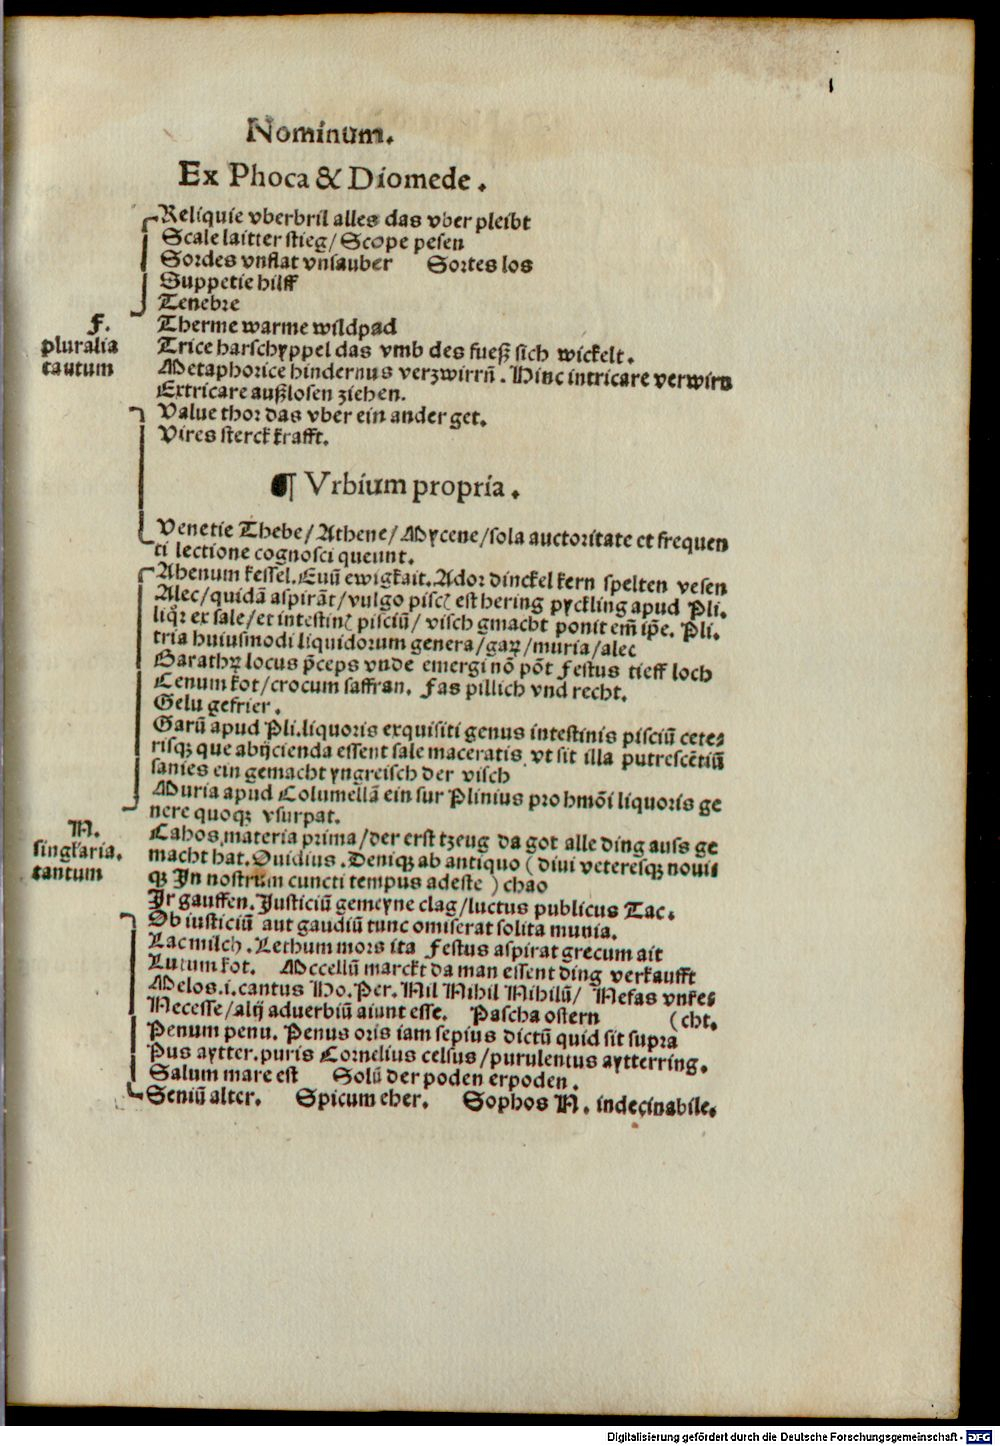 Nominum.
Ex Phoca & Diomede.
Reliquie vberbril alles das vber pleibt
Scale laitter stieg/ Scope pesen
Sordes vnflat vnsauber Sortes los
Suppetie hilff
Tenebre
F.
pluralia
tautum
Therme warme wildpad
Trice harschyppel das vmb des fueß sich wickelt.
Metaphorice hindernus verzwirrñ. Hinc intricare verwirn
Extricare außlosen ziehen.
Value thor das vber ein ander get.
Vires sterck krafft.
¶ Vrbium propria.
Venetie Thebe/ Athene/ Mycene/ sola auctoritate et frequen
ti lectione cognosci queunt.
Ahenum kessel. Euũ ewigkait. Ador dinckel kern spelten vesen
Alec/ quidã aspirãt/ vulgo piscꝭ est hering pyckling apud Pli.
liqꝛ ex sale/ et intestinꝭ pisciũ/ visch gmacht ponit em̃ ip̃e. Pli.
tria huiusmodi liquidorum genera/ gaꝝ/ muria/ alec
Barathꝝ locus p̃ceps vnde emergi nõ põt Festus tieff loch
Cenum kot/ crocum saffran. Fas pillich vnd recht.
Gelu gefrier.
Garũ apud Pli. liquoris exquisiti genus intestinis pisciũ cete-
risqꝫ que abijcienda essent sale maceratis vt sit illa putrescẽtiũ
sanies ein gemacht yngreisch der visch
Muria apud Columellã ein sur Plinius pro hmõi liquoris ge
nere quoqꝫ vsurpat.
N.
singlaria.
tantum
Cahos materia prima/ der erst tzeug da got alle ding auss ge
macht hat. Ouidius. Deniqꝫ ab antiquo ( diui veteresqꝫ noui-
qꝫ In nostrum cuncti tempus adeste ) chao
Ir gauffen. Iusticiũ gemeyne clag/ luctus publicus Tac.
Ob iusticiũ aut gaudiũ tunc omiserat solita munia.
Lac milch. Lethum mors ita Festus aspirat grecum ait
Lutum kot. Mccellũ marckt da man essent ding verkaufft
Melos .i. cantus Ho. Per. Nil Nihil Nihilũ/ Nefas vnre-
Necesse/ alij aduerbiũ aiunt esse. Pascha ostern (cht.
Penum penu. Penus oris iam sepius dictũ quid sit supra
Pus aytter. puris Cornelius celsus/ purulentus aytterring.
Salum mare est Solũ der poden erpoden.
Seniũ alter. Spicum eher. Sophos N. indecinabile.
Digitalisierung gefördert durch die Deutsche Forschungsgemeinschaft - DFG